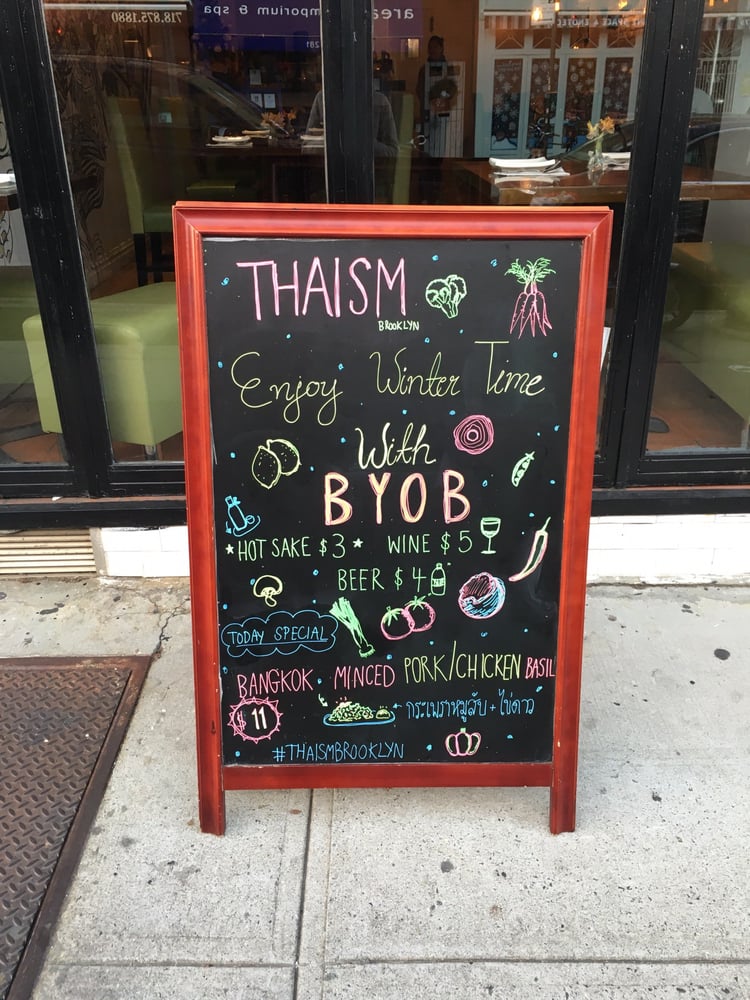 718.875.1880
area emporium & spa
281
THAISM
BROOKLYN
Enjoy Winter Time
With
BYOB
*HOT SAKE $3* WINE $5
BEER $4
TODAY SPECIAL
BANGKOK MINCED PORK/CHICKEN BASIL
$11
กระเพราหมูสับ + ไข่ดาว
#THAISMBROOKLYN